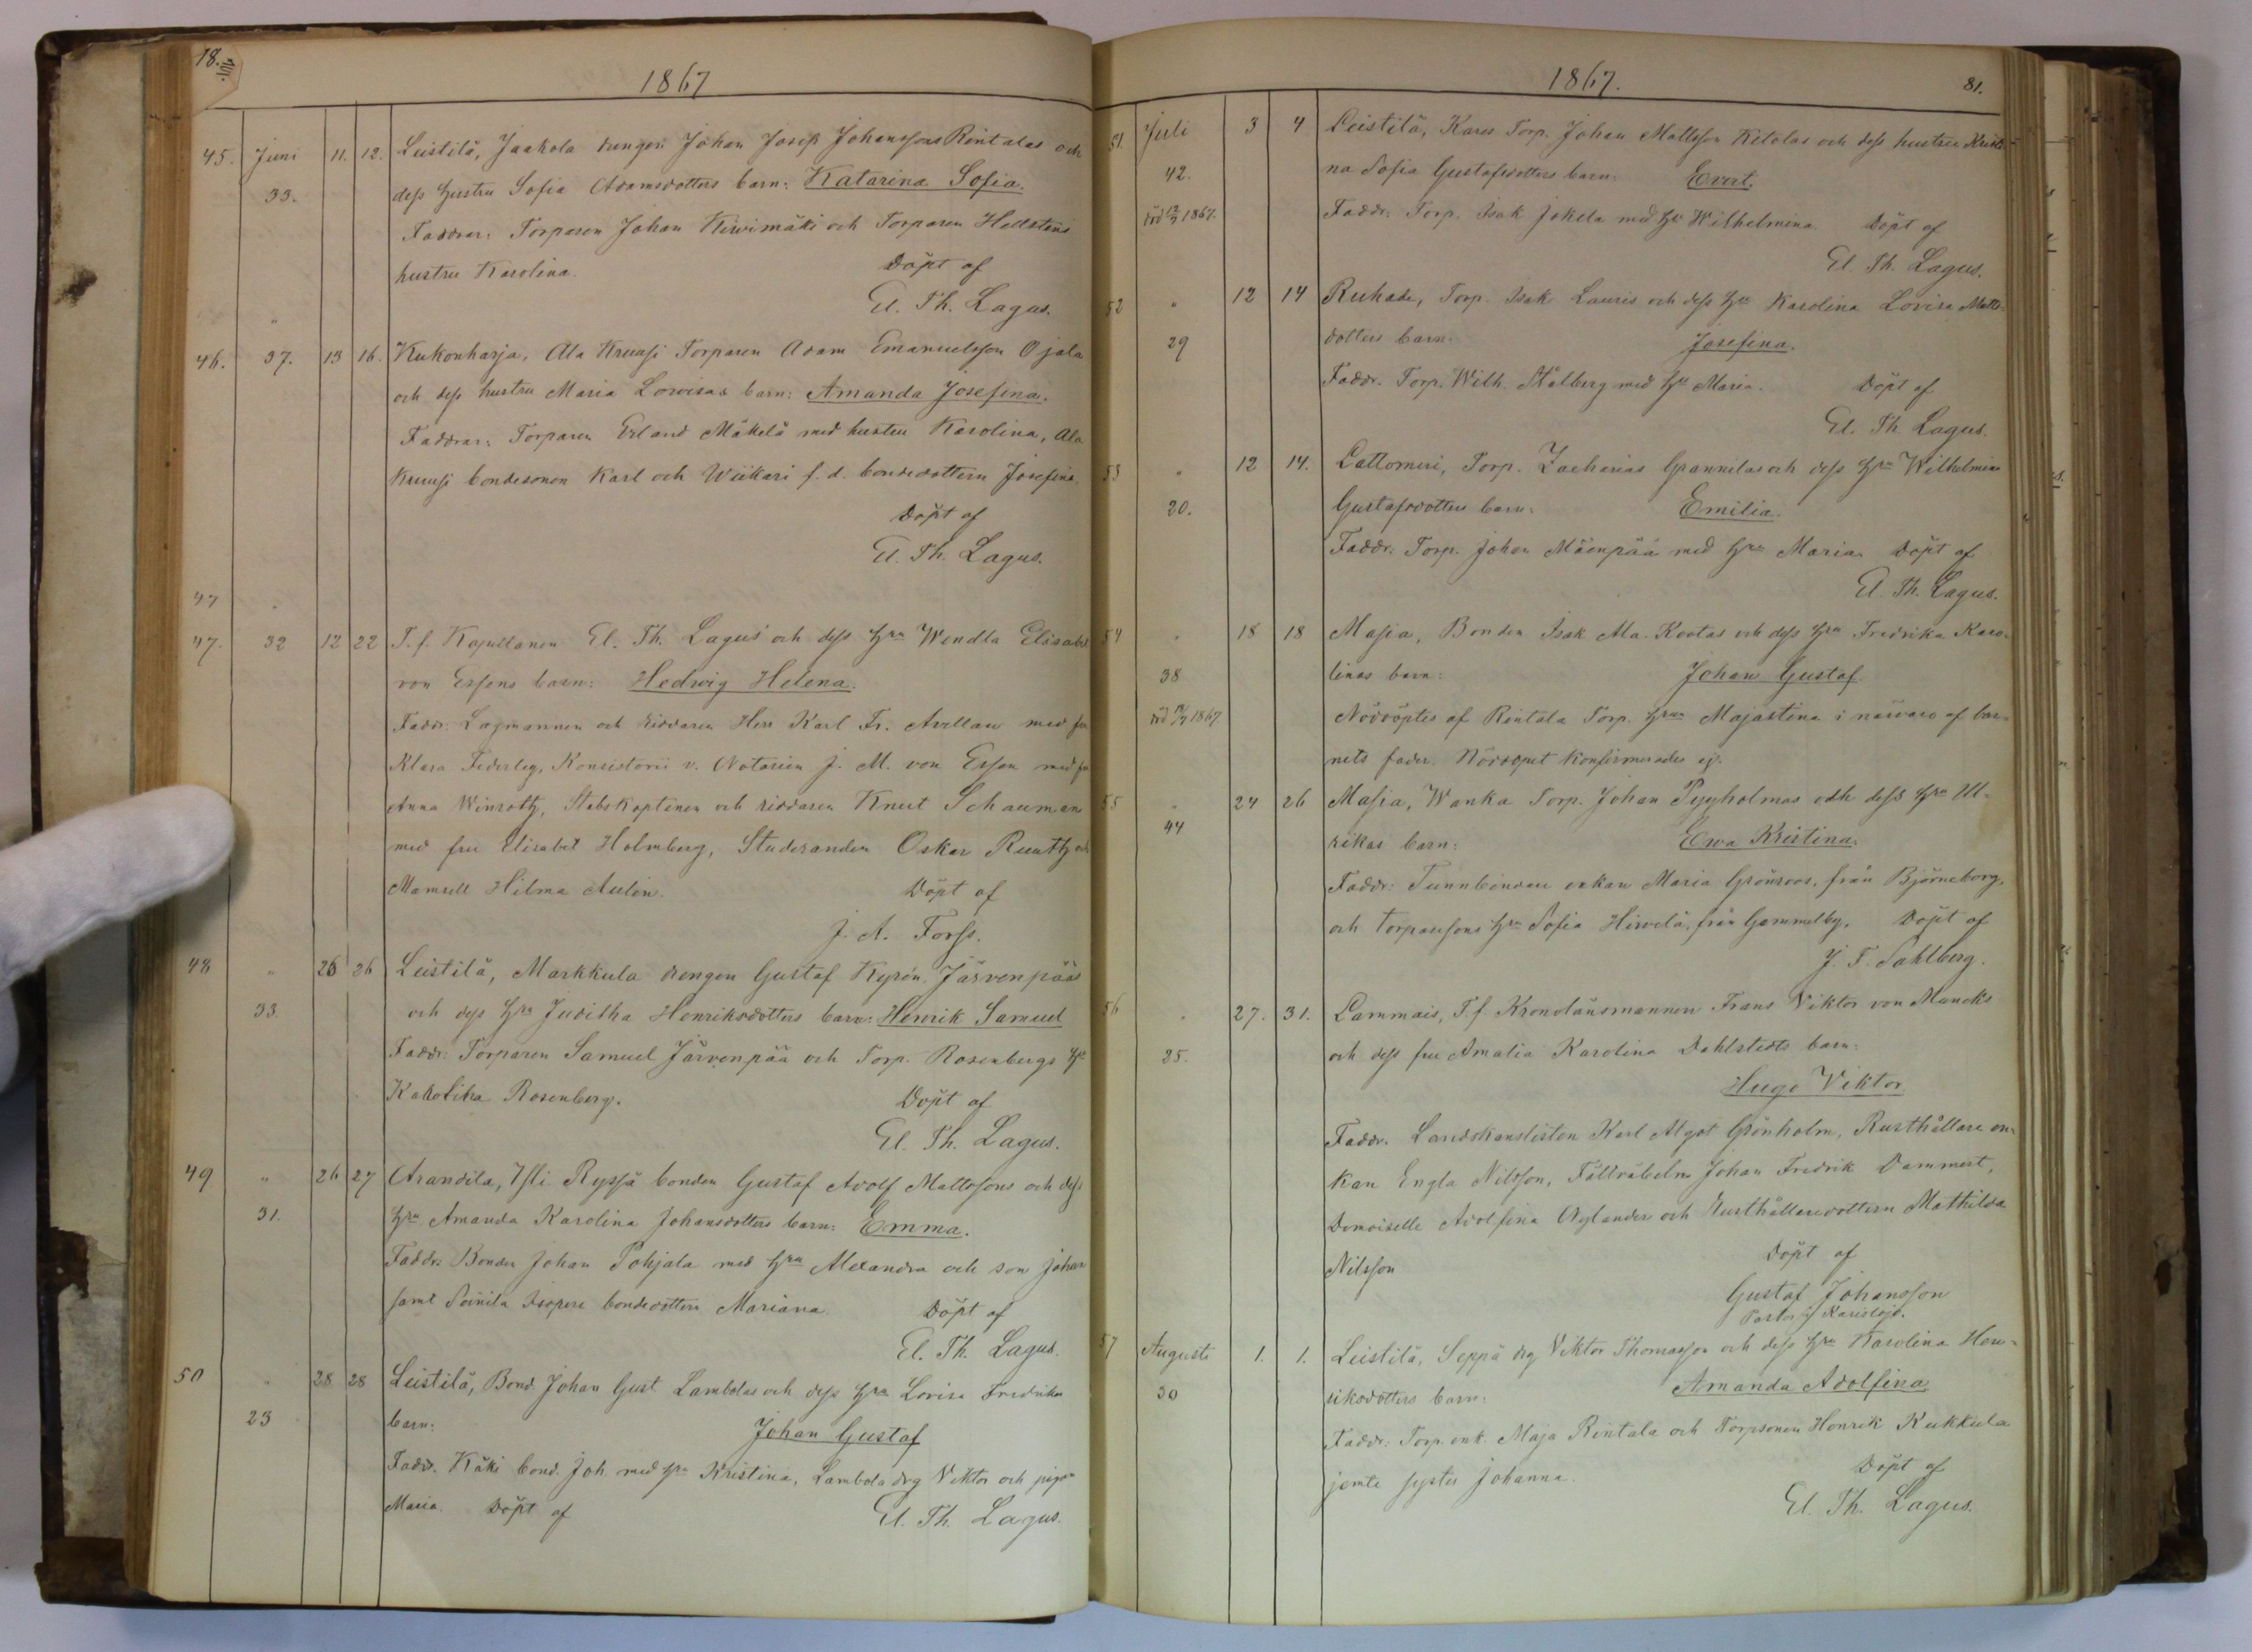 18.
1867
45. Juni 11. 12. Leistilä, Jaakola drengen Johan Josep Johanssons Rintalas och
33. dess hustru Sofia Adamsdotters barn: Katarina Sofia.
Faddrar: Torparen Johan Kiwimäki och Torparen Hellstens
hustru Karolina. Döpt af
El. Th. Lagus.
46. 37. 13 16. Kukonharja, Ala Kruusi Torparen Adam Emanuelsson Ojala
och dess hustru Maria Lowisas barn: Amanda Josefina.
Faddrar: Torparen Erland Mäkelä med hustru Karolina, Ala
Kruusi bondesonen Karl och Wiikari f. d. bondedottern Josefina.
Döpt af
El. Th. Lagus.
47
47. 32 12 22 T. f. Kapellanen El. Th. Lagus och dess Hru Wendla Elisabet
von Essens barn: Hedwig Helena.
Faddr: Lagmannen och Riddaren Herr Karl Fr. Avellan med fru
Klara Federley, Konsistorii v. Notarien J. M. von Essen med fru
Anna Winroth, Stabskaptenen och riddaren Knut Schauman
med fru Elisabet Holmberg, Studeranden Oskar Ruuth och
Mamsell Hilma Aulin. Döpt af
J. A. Forss.
48 " 26 26 Leistilä, Markkula drengen Gustaf Kyrön Järvenpääs
33. och dess Hru Juditha Henriksdotters barn: Henrik Samuel
Faddr: Torparen Samuel Järvenpää och Torp. Rosenbergs Hu
Karolina Rosenberg. Döpt af
El. Th. Lagus.
49 " 26 27 Arandila, Yli Ryssä bonden Gustaf Adolf Mattssons och dess
31. Hru Amanda Karolina Johansdotters barn: Emma.
Faddr: Bonden Johan Pohjala med Hru Alexandra och son Johan
samt Soinila Isopere bondedottern Mariana. Döpt af
El. Th. Lagus.
50 " 28 28 Leistilä, Bond. Johan Gust Lambolas och dess Hru Lovisa Fredrikas
23 barn: Johan Gustaf
Faddr. Käki bond. Joh. med Hu Kristina, Lambola drg Viktor och pigan
Maria. Döpt af El. Th. Lagus.
1867. 81.
51. Juli 3 4 Leistilä, Kares Torp. Johan Mattsson Ketolas och dess hustru Kristi-
42. na Sofia Gustafsdotters barn: Evert.
död 12/7 1867. Faddr: Torp. Isak Jokela med Hu Wilhelmina. Döpt af
El. Th. Lagus.
52 " 12 14 Ruhade, Torp. Isak Lauris och dess Hru Karolina Lovisa Matts-
29 dotters barn: Josefina.
Faddr. Torp. Wilh. Stålberg med Hu Maria. Döpt af
El. Th. Lagus.
53 " 12 14. Lattomeri, Torp. Zacharias Grannilas och dess Hru Wilhelmina
20. Gustafsdotters barn: Emilia.
Faddr: Torp. Johan Mäenpää med Hru Maria. Döpt af
El. Th. Lagus.
54 " 18 18 Masia, Bonden Isak Ala-Kootas och dess Hru Fredrika Karo-
38 linas barn: Johan Gustaf.
död 18/7 1867. Nöddöptes af Rintala Torp. Hrun Majastina i närvaro af bar-
nets fader. Nöddopet konfirmerades ej.
55 " 24 26 Masia, Wanka Torp. Johan Pyyholmas och dess Hru Ul-
44 rikas barn: Ewa Kristina.
Faddr: Tunnbindare enkan Maria Grönroos, från Björneborg,
och torparesons Hru Sofia Hirvelä, från Gammelby. Döpt af
J. F. Sahlberg.
56 " 27. 31. Lammais, T.f. Kronolänsmannen Frans Viktor von Muncks
25. och dess fru Amalia Karolina Dahlstedts barn:
Hugo Viktor
Faddr. Landskanslisten Karl Algot Grönholm, Rusthållare en-
kan Engla Nilsson, Fältväbeln Johan Fredrik Dammert,
Demoiselle Adolfina Nylander och Rusthållaredottern Mathilda
Nilsson Döpt af
Gustaf Johansson
Pastor i Karislojo.
57 Augusti 1. 1. Leistilä, Seppä drg Viktor Thomasson och dess Hru Karolina Hen-
30 riksdotters barn: Amanda Adolfina
Faddr: Torp. enk. Maja Rintala och Torpsonen Henrik Kukkula
jemte syster Johanna. Döpt af
El. Th. Lagus.